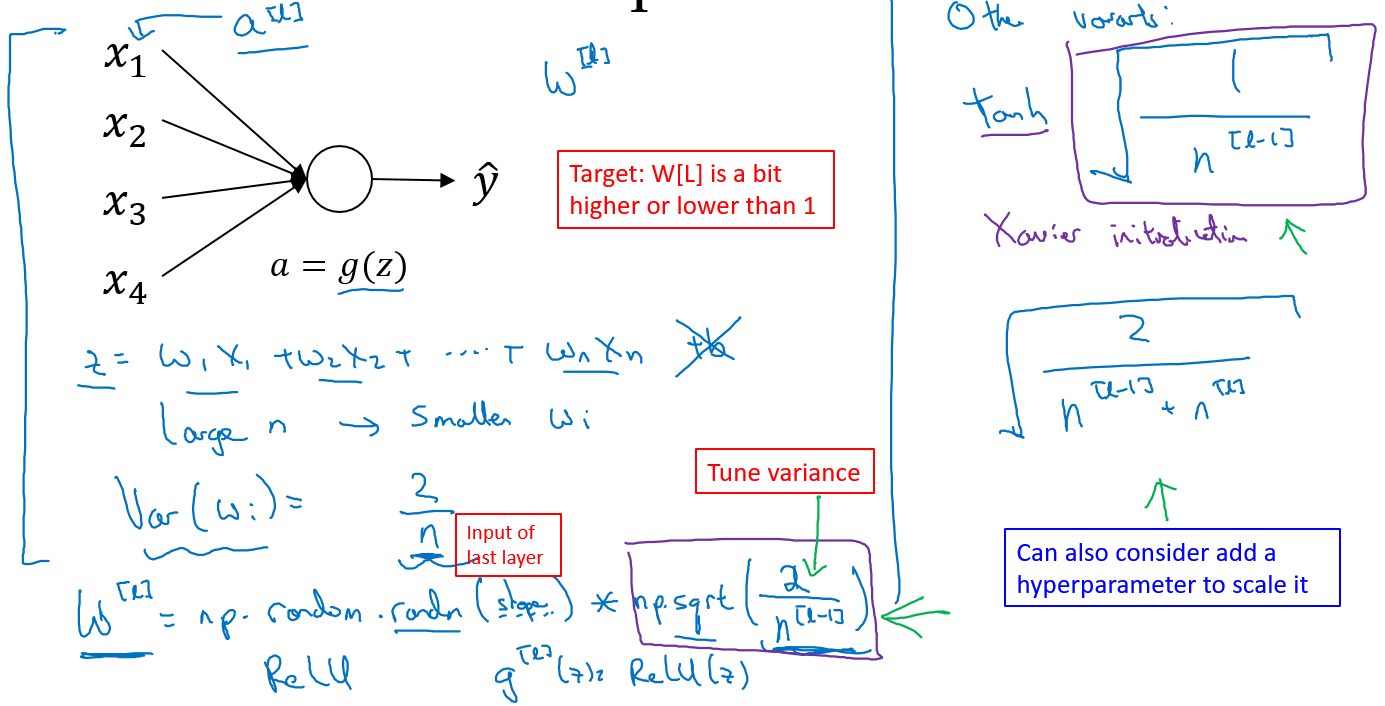 a^[l]
x₁
x₂
x₃
x₄
ŷ
a = g(z)
W^[l]
Target: W[L] is a bit
higher or lower than 1
z = w₁x₁ + w₂x₂ + ..... + wₙxₙ +b
Large n → Smaller wᵢ
Var(wᵢ) = 2/n
Input of
last layer
Tune variance
W^[l] = np.random.randn(shape) * np.sqrt(2/n^[l-1])
ReLU g^[l](z) = ReLU(z)
Other variants:
tanh √(1/n^[l-1])
Xavier initialization
√(2/(n^[l-1] + n^[l]))
Can also consider add a
hyperparameter to scale it